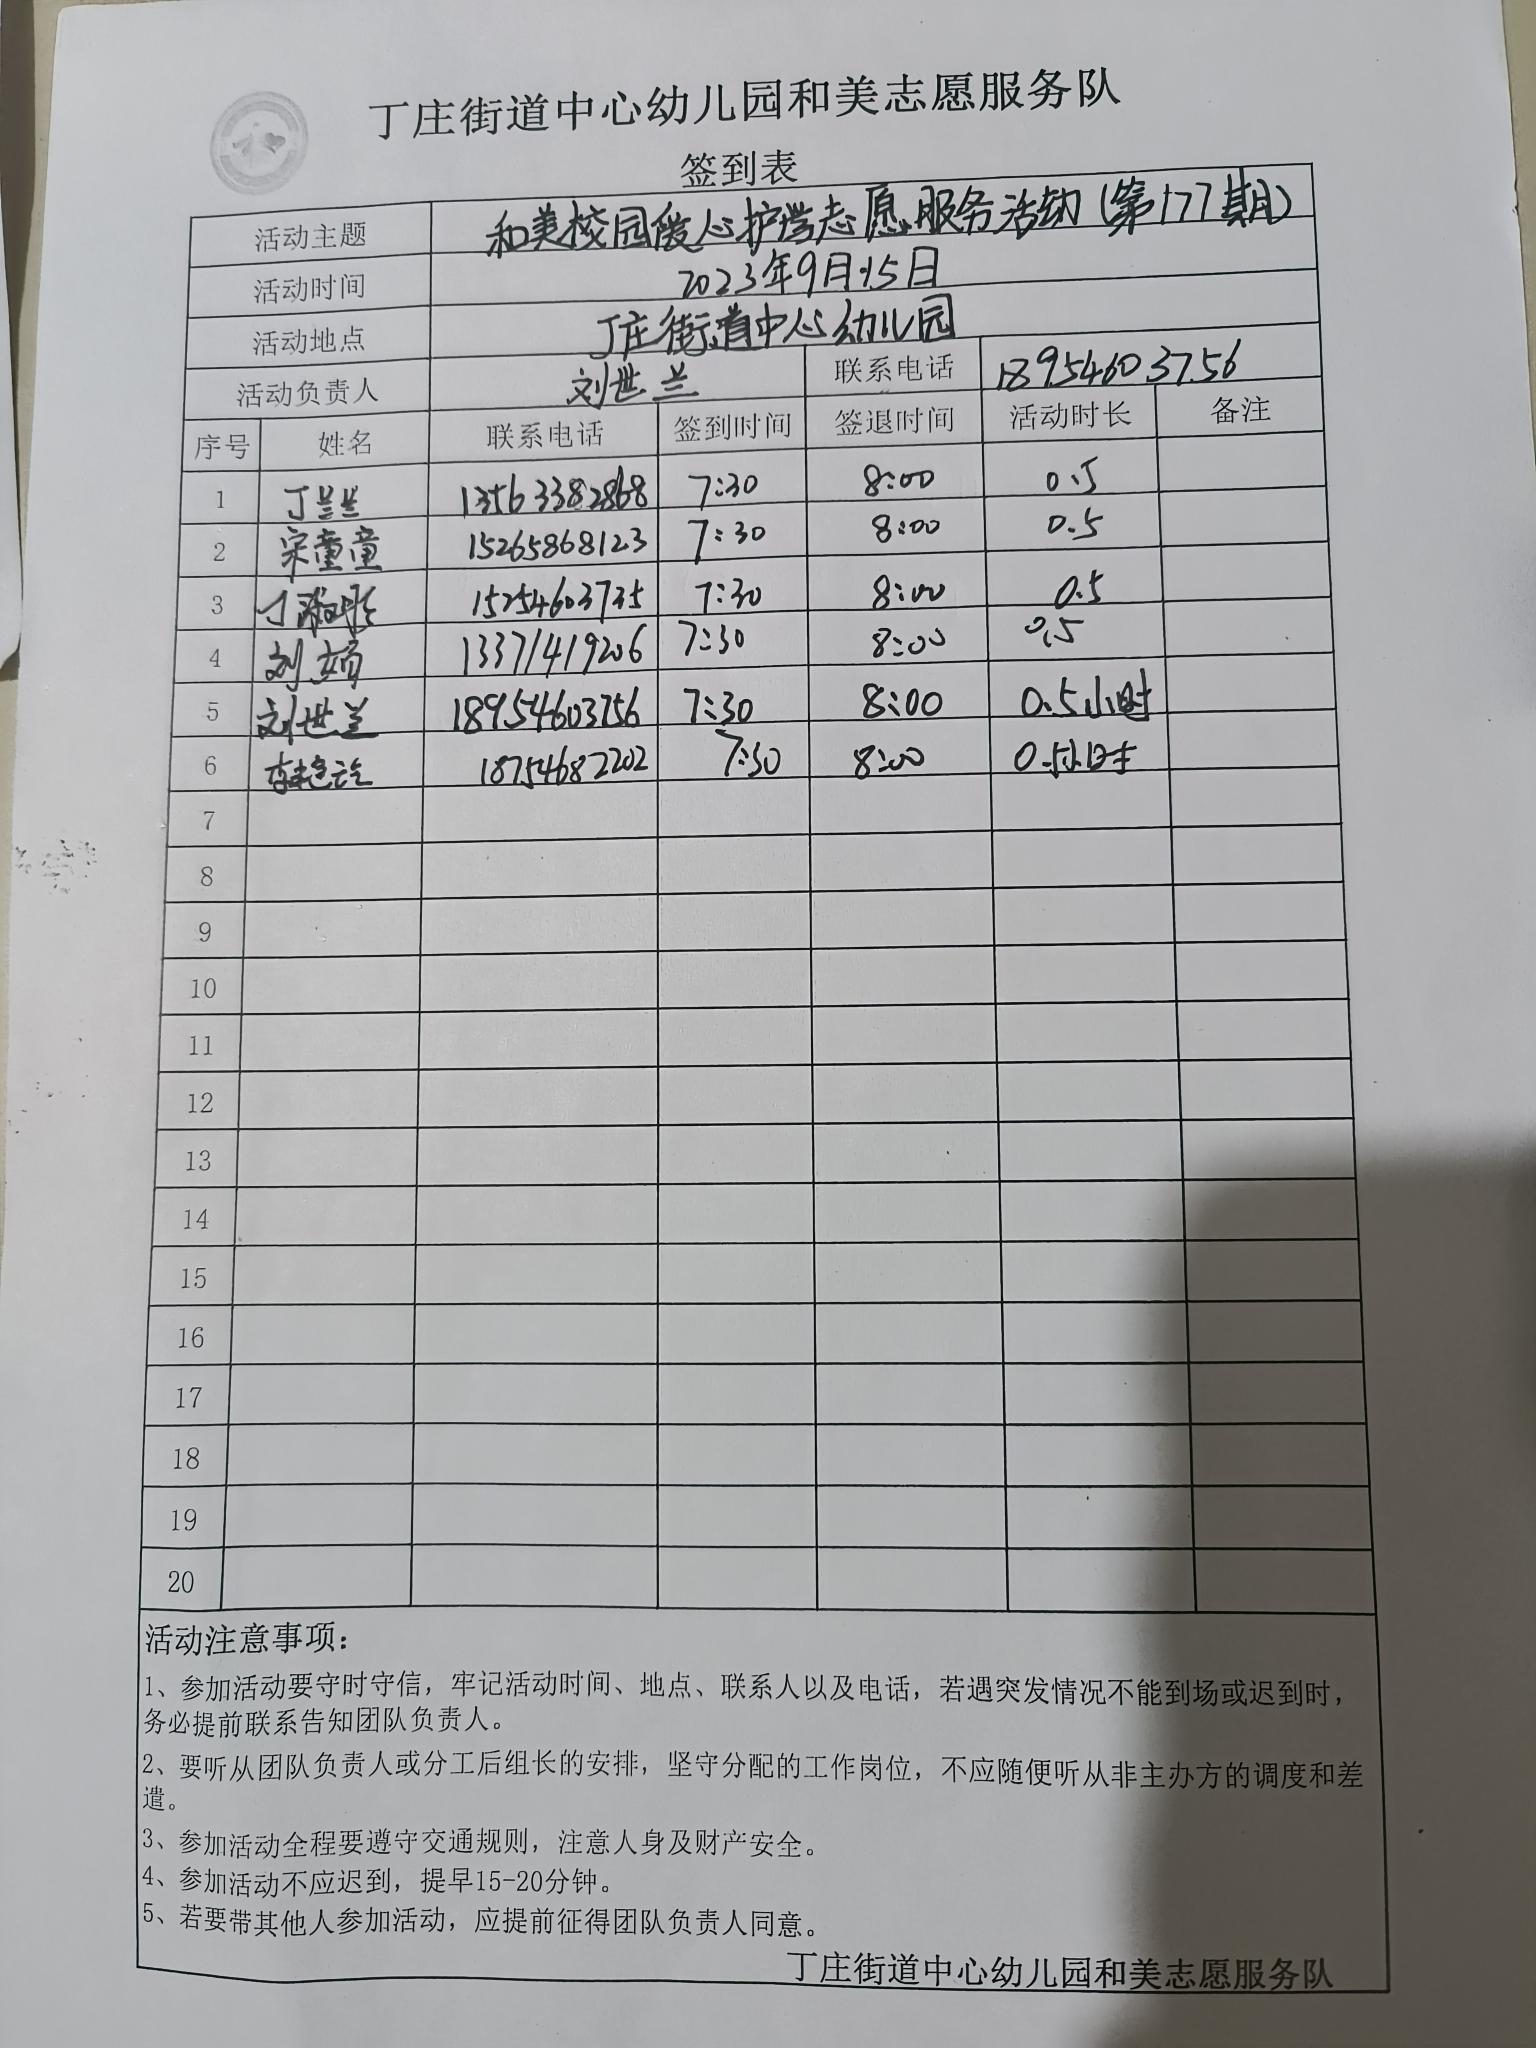 丁庄街道中心幼儿园和美志愿服务队
签到表
活动主题 和美校园爱心护学志愿服务活动(第177期)
活动时间 2023年9月15日
活动地点 丁庄街道中心幼儿园
活动负责人 刘世兰 联系电话 18954603756
序号 姓名 联系电话 签到时间 签退时间 活动时长 备注
1 丁兰兰 13563382868 7:30 8:00 0.5
2 宋童童 15265868123 7:30 8:00 0.5
3 丁 15254603735 7:30 8:00 0.5
4 刘娟 13371419206 7:30 8:00 0.5
5 刘世兰 18954603756 7:30 8:00 0.5小时
6 18754682202 7:30 8:00 0.5小时
7
8
9
10
11
12
13
14
15
16
17
18
19
20
活动注意事项：
1、参加活动要守时守信，牢记活动时间、地点、联系人以及电话，若遇突发情况不能到场或迟到时，
务必提前联系告知团队负责人。
2、要听从团队负责人或分工后组长的安排，坚守分配的工作岗位，不应随便听从非主办方的调度和差
遣。
3、参加活动全程要遵守交通规则，注意人身及财产安全。
4、参加活动不应迟到，提早15-20分钟。
5、若要带其他人参加活动，应提前征得团队负责人同意。
丁庄街道中心幼儿园和美志愿服务队